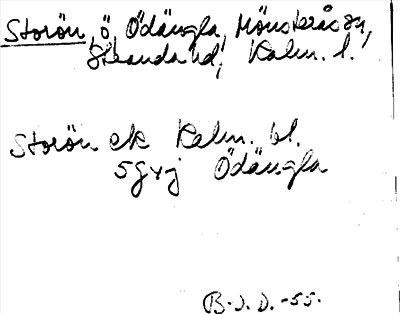 Storön, ö, Ödängla, Mönsterås sn,
Stranda hd, Kalm. l.
Storön ek Kalm. bl.
5g4j Ödängla
B.J.D. -55.